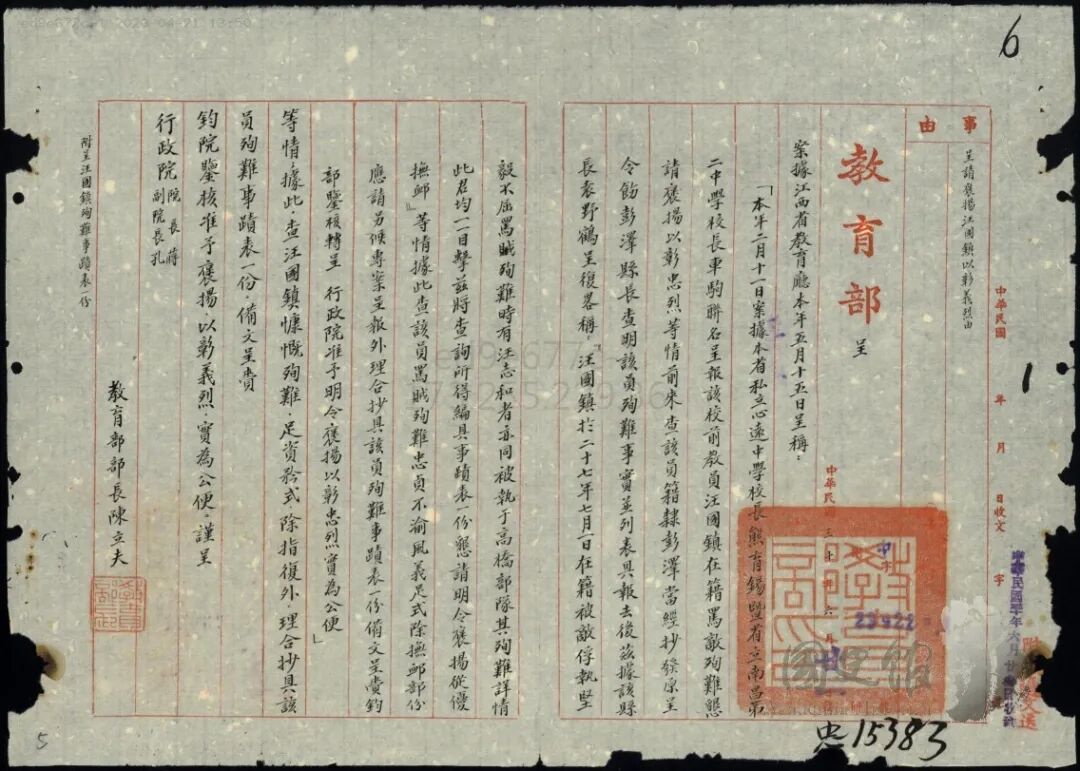 6
事由
呈請褒揚汪國鎮以彰義烈由
中華民國 年 月 日收文 字
教育部 呈
案據江西省教育廳本年五月十五日呈稱：
「本年二月十一日案據本省私立心遠中學校長熊育鍚暨省立南昌第
二中學校長車駒聯名呈報該校前教員汪國鎮在籍罵敵殉難懇
請褒揚以彰忠烈等情前來查該員籍隸彭澤當經抄發原呈
令飭彭澤縣長查明該員殉難事實並列表具報去後茲據該縣
長袁野鶴呈復畧稱：『汪國鎮於二十七年七月一日在籍被敵俘執堅
毅不屈罵賊殉難時有汪志和者亦同被執于高橋部隊其殉難詳情
此君均一一目擊茲將查詢所得編具事蹟表一份懇請明令褒揚從優
撫卹』等情據此查該員罵賊殉難忠貞不渝風義足式除撫卹部份
應請另候專案呈報外理合抄具該員殉難事蹟表一份備文呈賫鈞
部鑒核轉呈 行政院准予明令褒揚以彰忠烈實為公便」
等情，據此，查汪國鎮慷慨殉難，足資矜式，除指復外，理合抄具該
員殉難事蹟表一份，備文呈賫
鈞院鑒核准予褒揚，以彰義烈，實為公便。謹呈
行政院院長蔣
副院長孔
附呈汪國鎮殉難事蹟表一份
教育部部長陳立夫
中華民國三十年六月廿
字
23922
1
忠15383
5